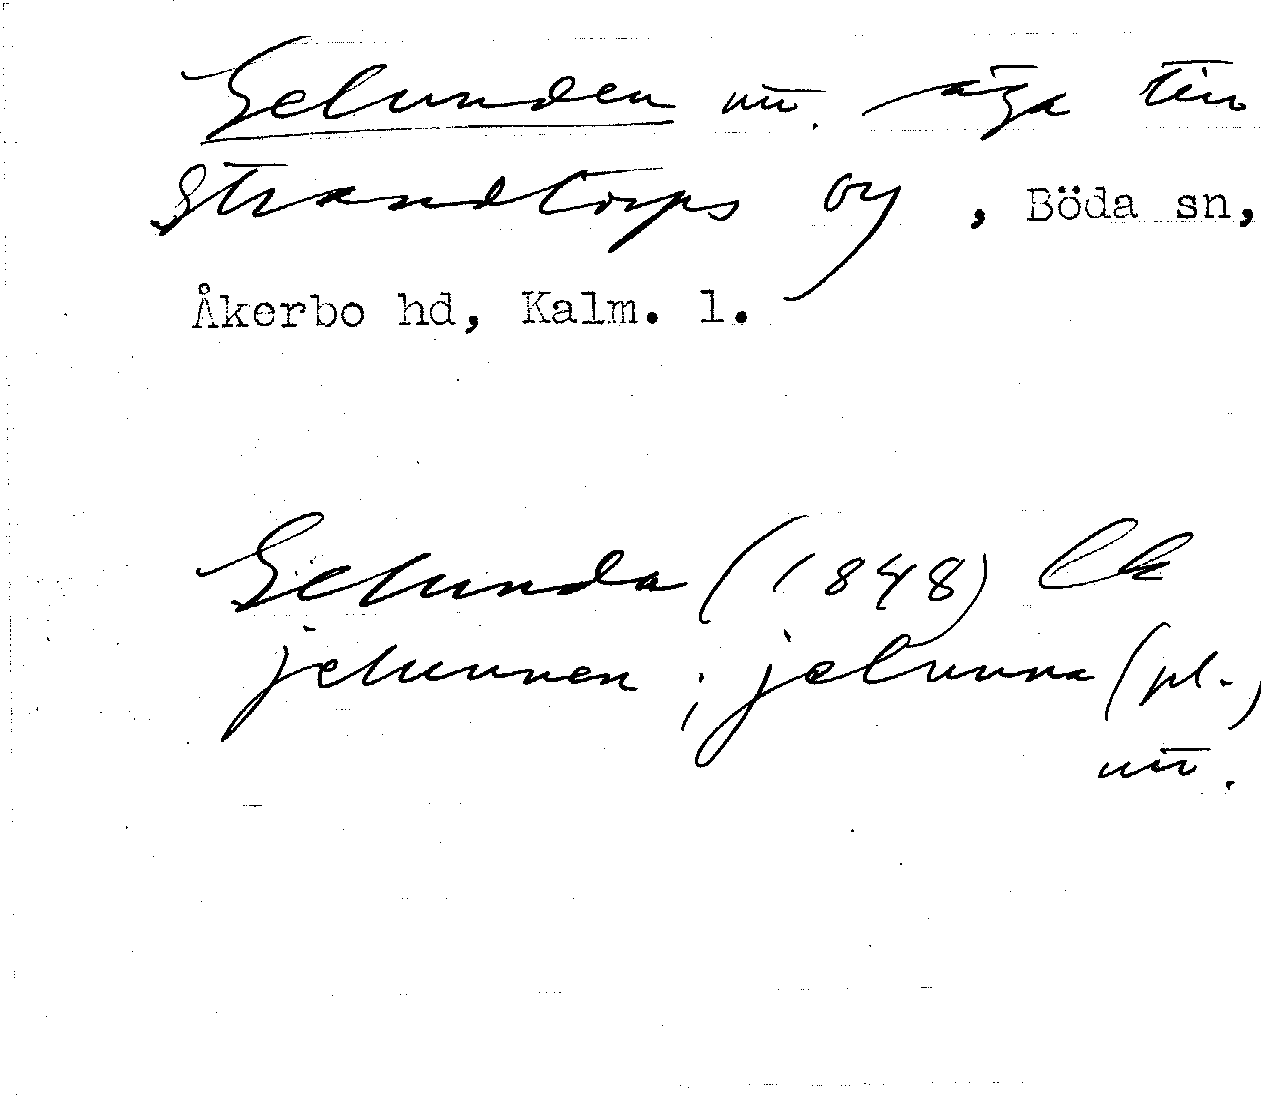 Gelunden nu. äga till
Strandtorps by, Böda sn,
Åkerbo hd, Kalm. l.
Gelunda (1848) Lk
jelunnen ; jelunna (pl.)
nu.